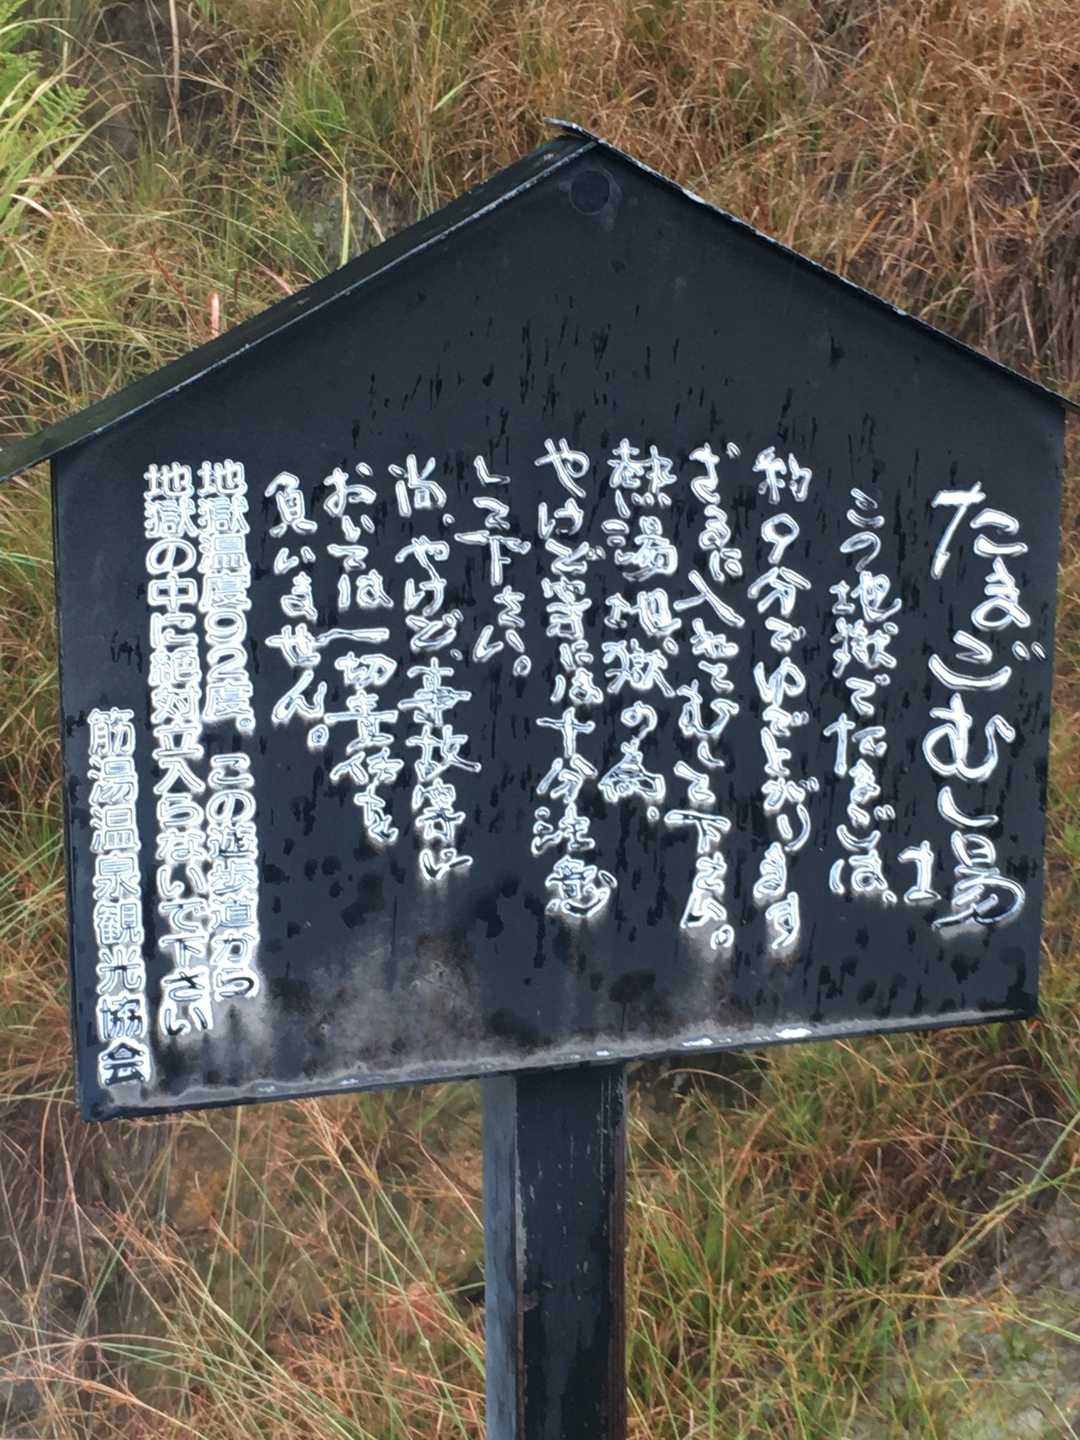 たまごむし場
この地獄でたまごは、
約9分でゆで上がります
ざるに入れてむして下さい。
熱湯地獄の為、
やけど等には十分注意
して下さい。
尚、やけど、事故等に
おいては一切責任を
負いません。
地獄温度92度。この遊歩道から
地獄の中に絶対立入らないで下さい
筋湯温泉観光協会